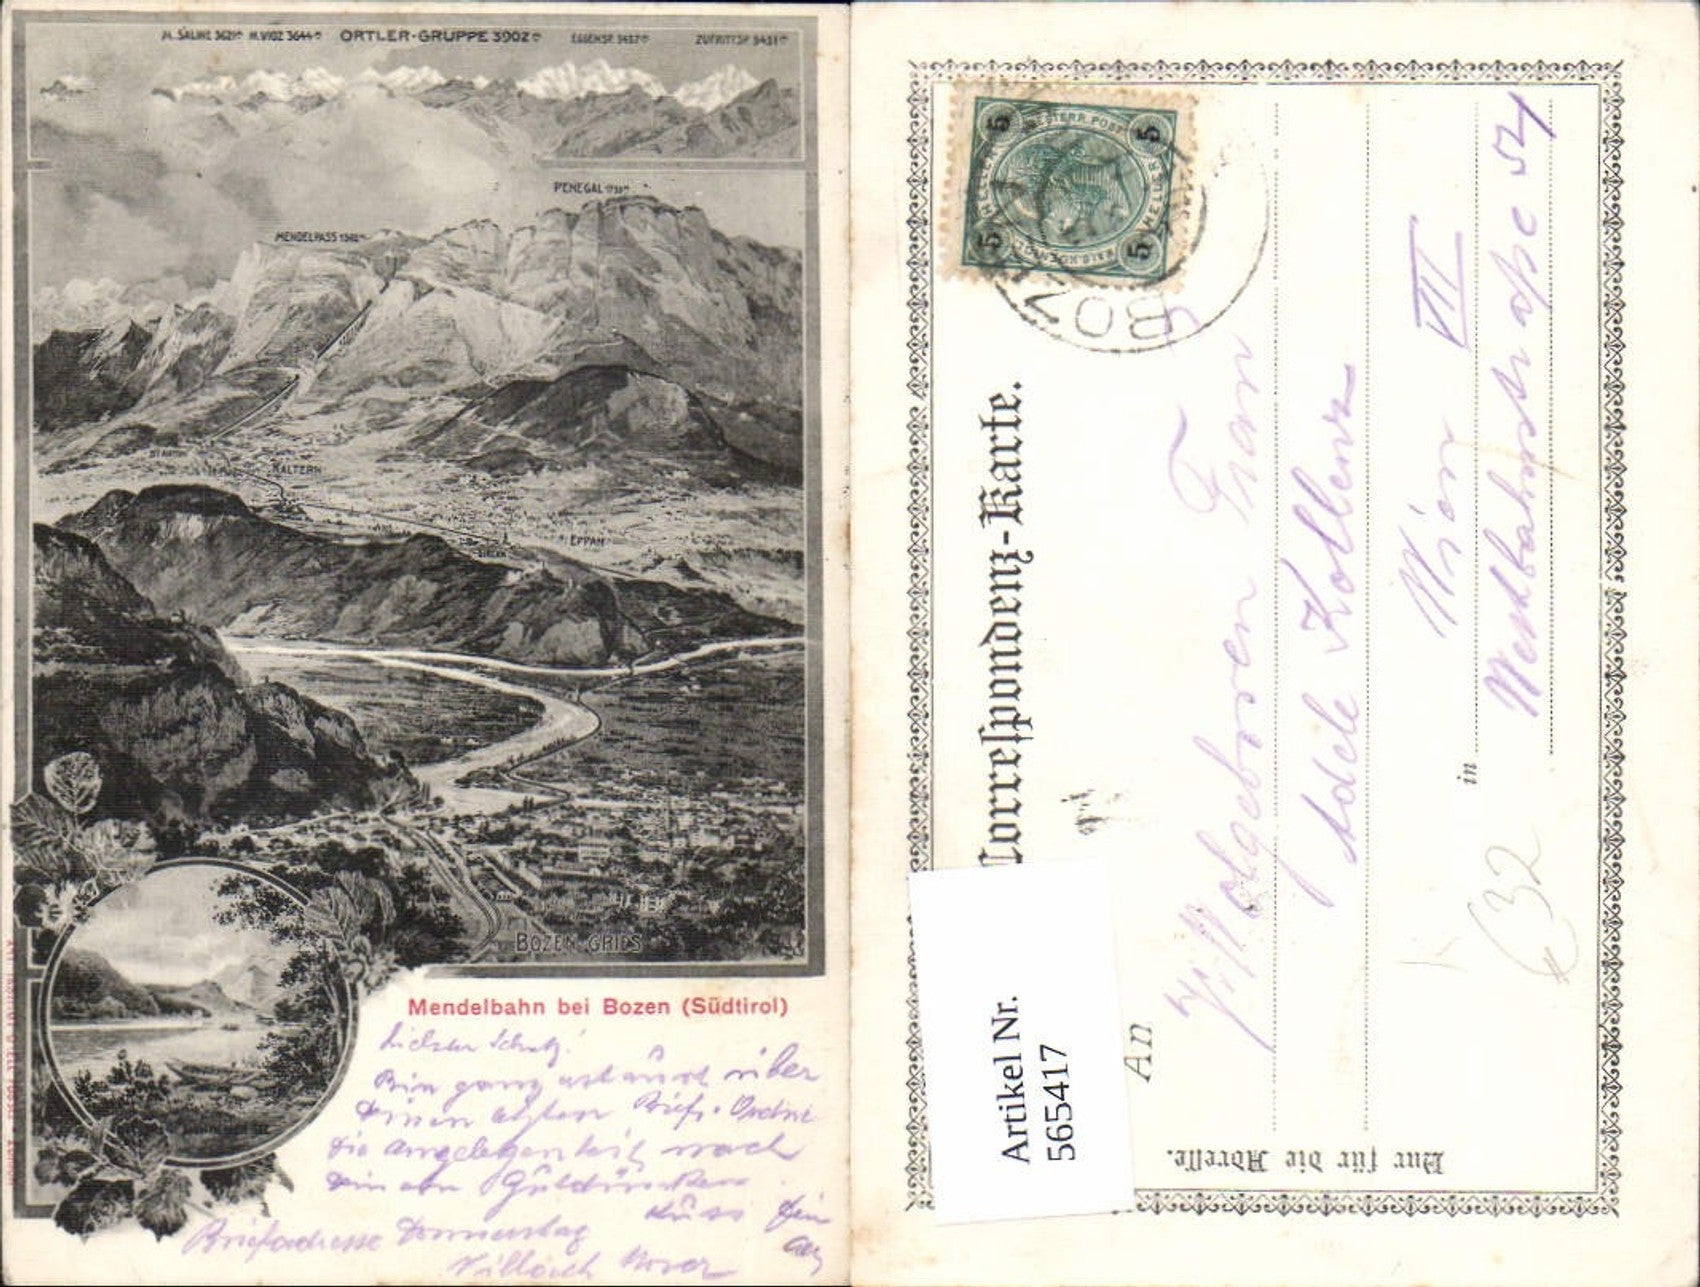 M. SALINE 3621m M. VIOZ 3644m ORTLER-GRUPPE 3902m EGGENSP. 3437m ZUFRITTSP. 3431m
PENEGAL
MENDELPASS
ST. ANTON
KALTERN
EPPAN
GIRLAN
BOZEN-GRIES
Mendelbahn bei Bozen (Südtirol)
Liebster Schatz!
Bin ganz erstaunt über
Deinen letzten Brief. Ordne
die Angelegenheit nach
Deinem Gutdünken.
Kuss Dein
Briefadresse Donnerstag
Villach
5 5 5 5
BOZ
Correspondenz-Karte.
An
Wohlgeboren Frau
Adele Kollenz
Wien VII
in
Westbahnstrasse 54
Nur für die Adresse.
32
Artikel Nr.
565417